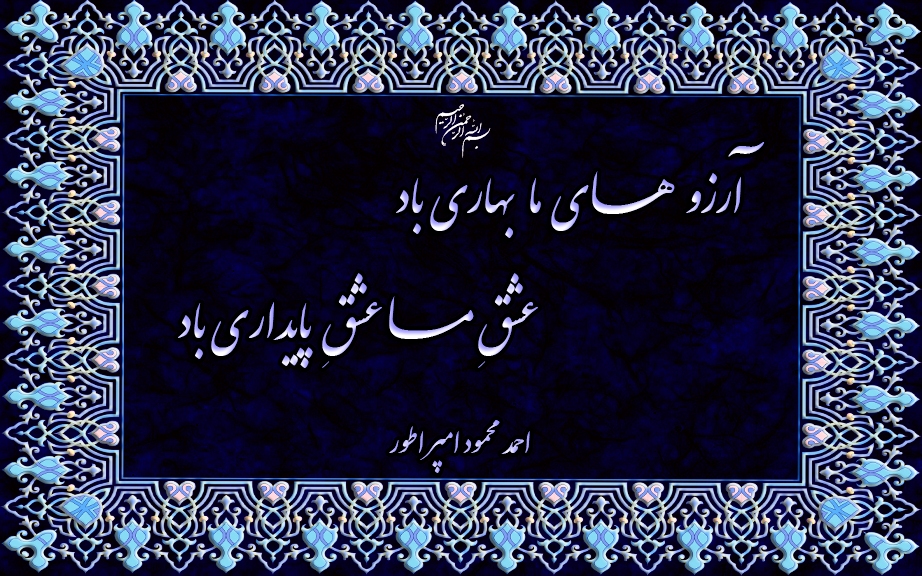 بسم الله الرحمن الرحیم
آرزو های ما بهاری باد
عشقِ ما عشقِ پایداری باد
احمد محمود امپراطور